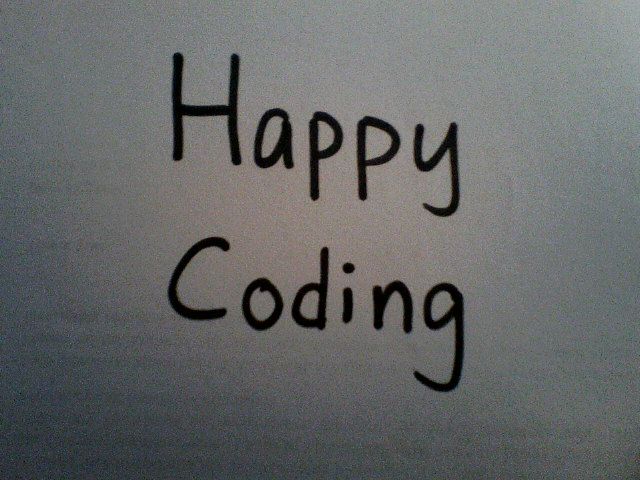 Happy
Coding